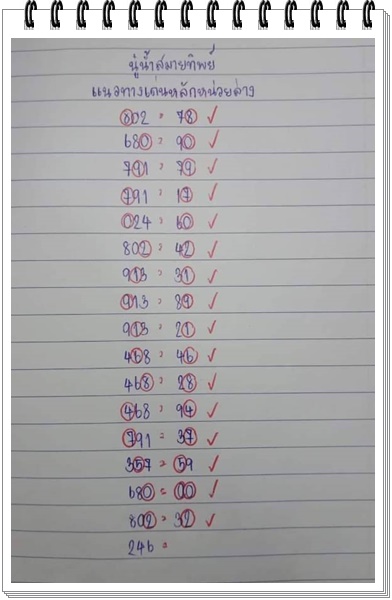 นู๋น้ำสมายทิพย์
แนวทางเด่นหลักหน่วยล่าง
802 = 78 ✓
680 = 90 ✓
791 = 79 ✓
791 = 17 ✓
024 = 60 ✓
802 = 42 ✓
913 = 31 ✓
913 = 89 ✓
913 = 21 ✓
468 = 46 ✓
468 = 28 ✓
468 = 94 ✓
791 = 37 ✓
357 = 59 ✓
680 = 00 ✓
802 = 32 ✓
246 =